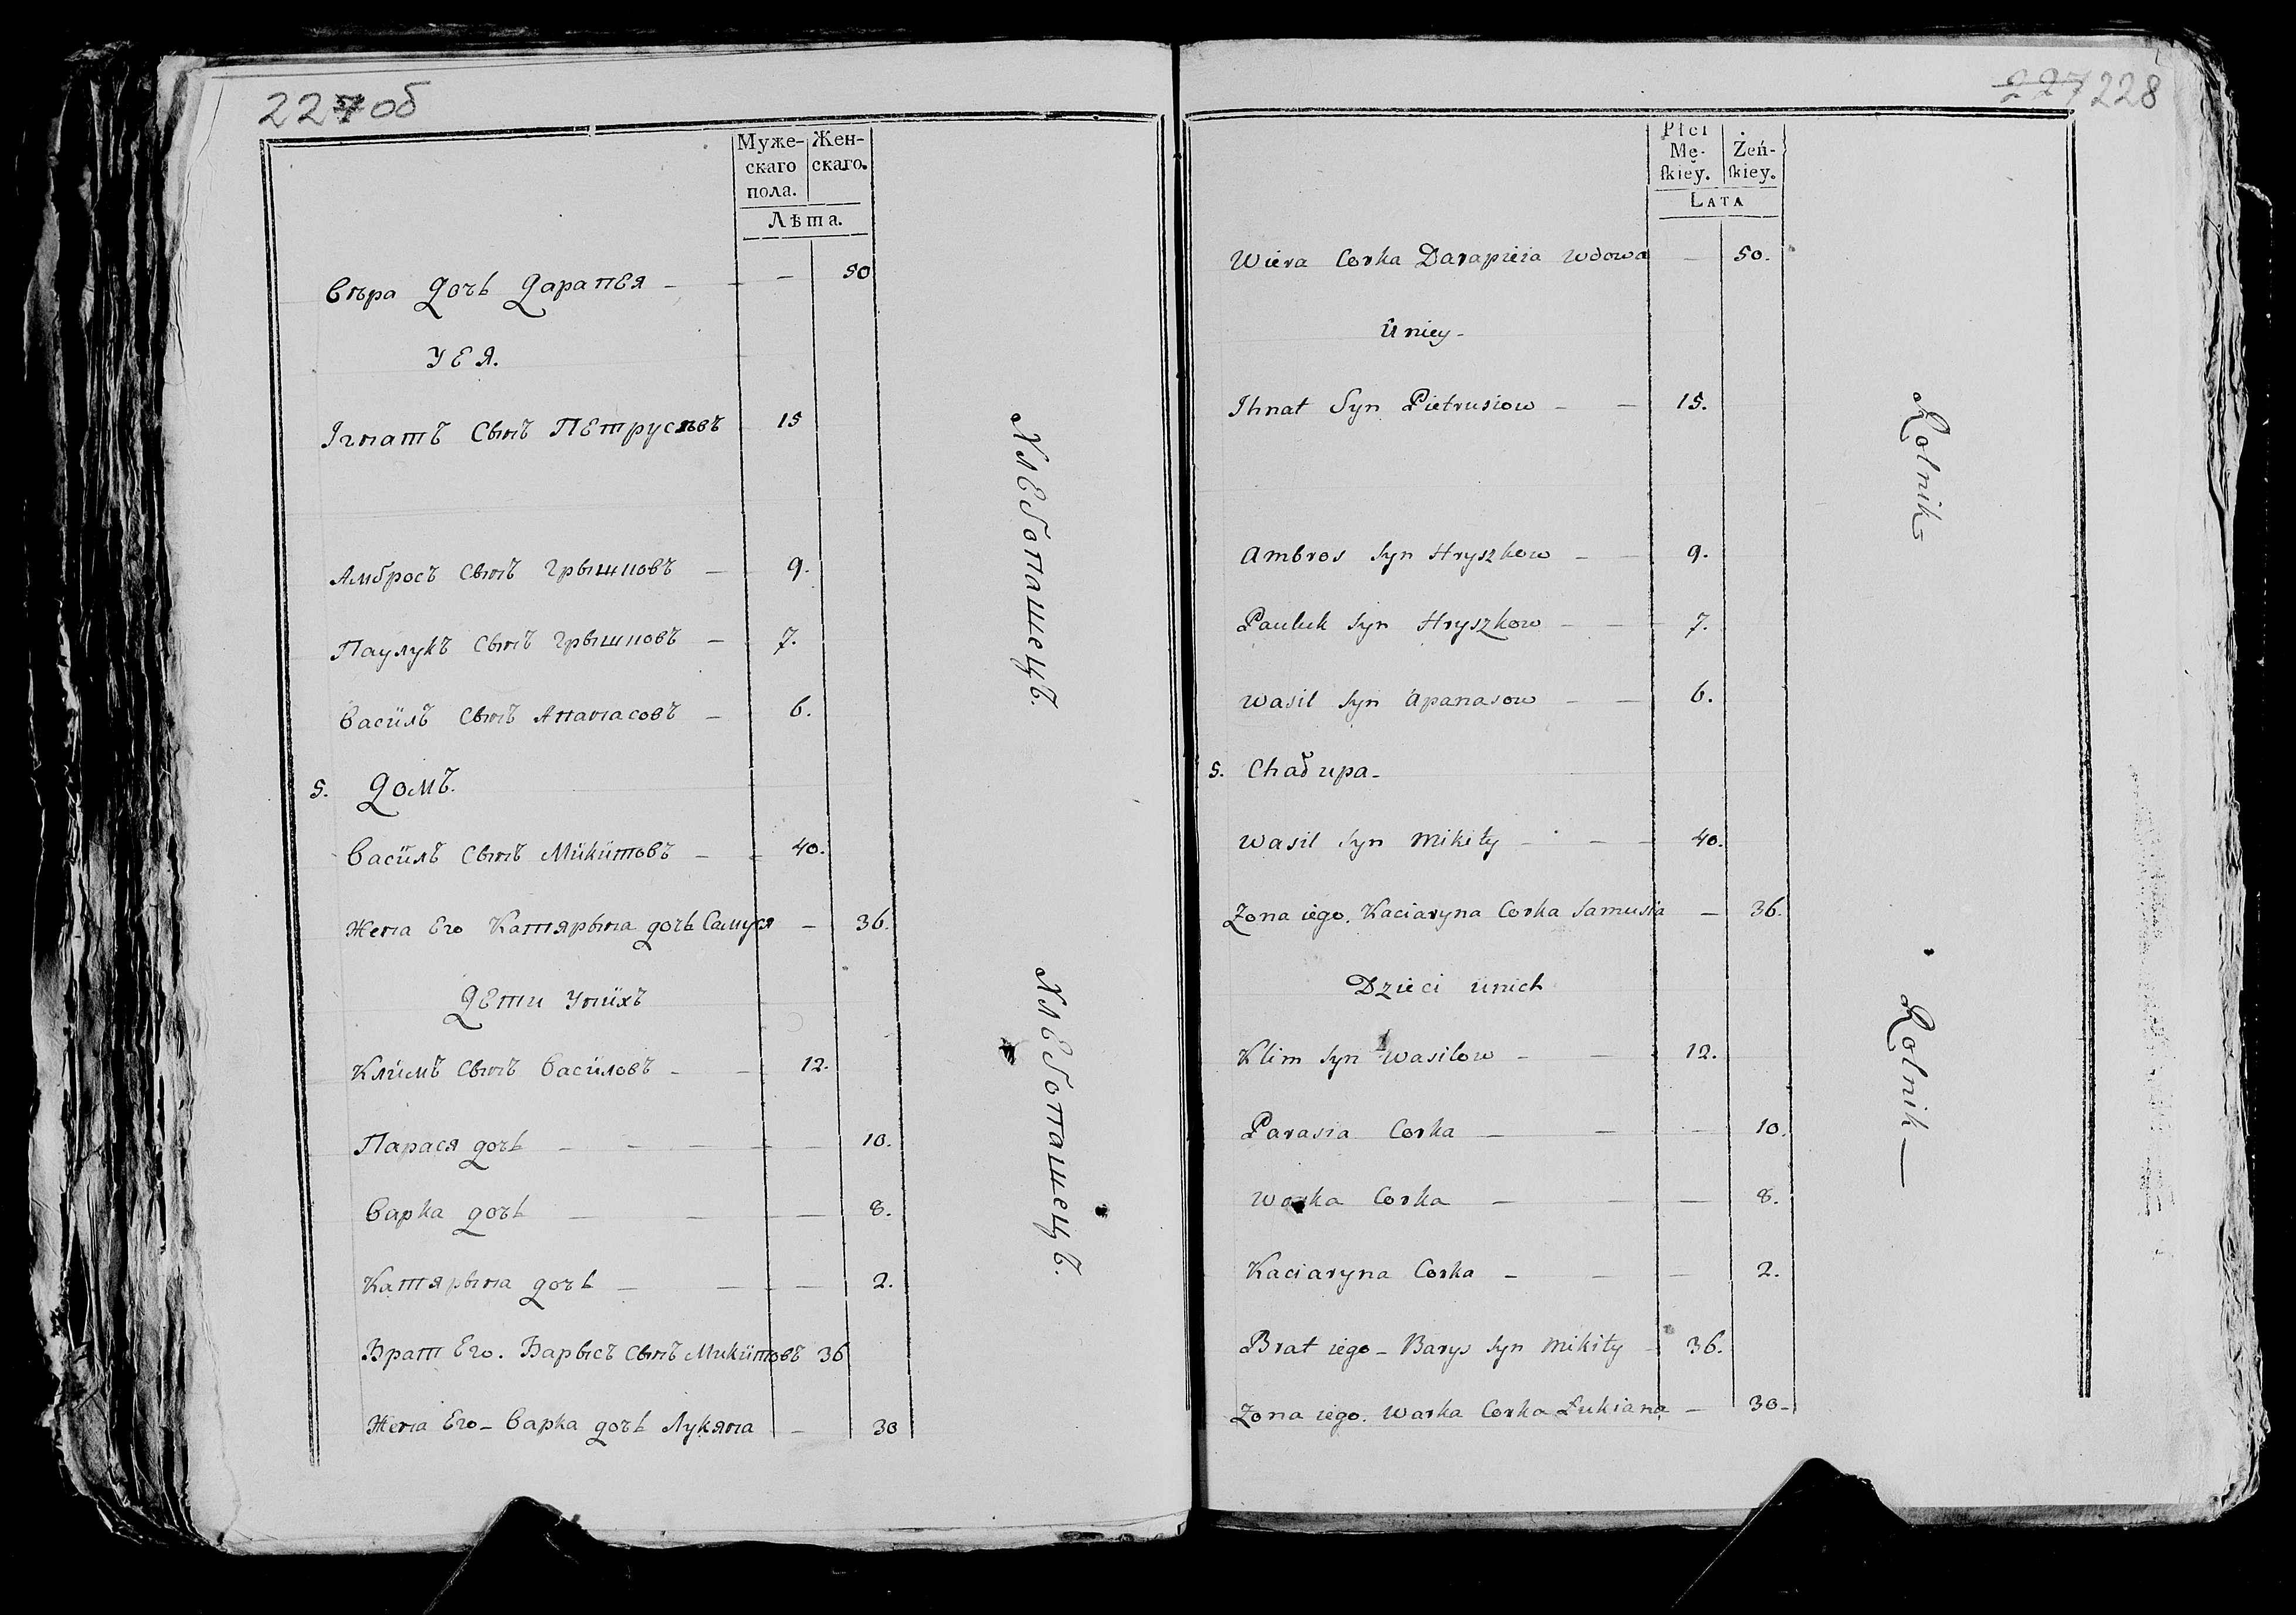 227об
Муже- Жен-
скаго скаго.
пола.
Лѣта.
Вѣра Дочь Дарапея — — — 50
У Ея.
Iгнатъ Сынъ Петрусѣвъ 15
Амбросъ Сынъ Грышковъ — 9.
Паулукъ Сынъ Грышковъ — 7.
Васïлъ Сынъ Апанасовъ — 6.
Хлебопашецъ.
5. Домъ.
Васïлъ Сынъ Мïкïтовъ — — 40.
Жена Его Катярына дочь Самуся — 36.
Дети Унïхъ
Клïмъ Сынъ Васïловъ — — 12.
Парася дочь — — — — — 10.
Варка дочь — — — — 8.
Катярына дочь — — — 2.
Брат Его. Барысъ Сынъ Микïтовъ 36
Жена Его — Варка дочь Лукяна — 30
Хлебопашецъ.
227 228
Płci
Mę- Żeń-
ſkiey. ſkiey.
LATA
Wiera Corka Darapieia Wdowa — 50.
Uniey —
Ihnat Syn Pietrusiow — — 15.
Ambros Syn Hryszkow — — 9.
Pauluk Syn Hryszkow — — — 7.
Wasil Syn Apanasow — — 6.
Rolnik —
5. Chałupa —
Wasil Syn Mikity — — — 40.
Zona iego. Kaciaryna Corka Samusia — 36.
Dzieci unich
Klim Syn Wasilow — — 12.
Parasia Corka — — — 10.
Warka Corka — — — 8.
Kaciaryna Corka — — — 2.
Brat iego — Barys Syn Mikity — 36.
Zona iego. Warka Corka Łukiana — 30 —
Rolnik —